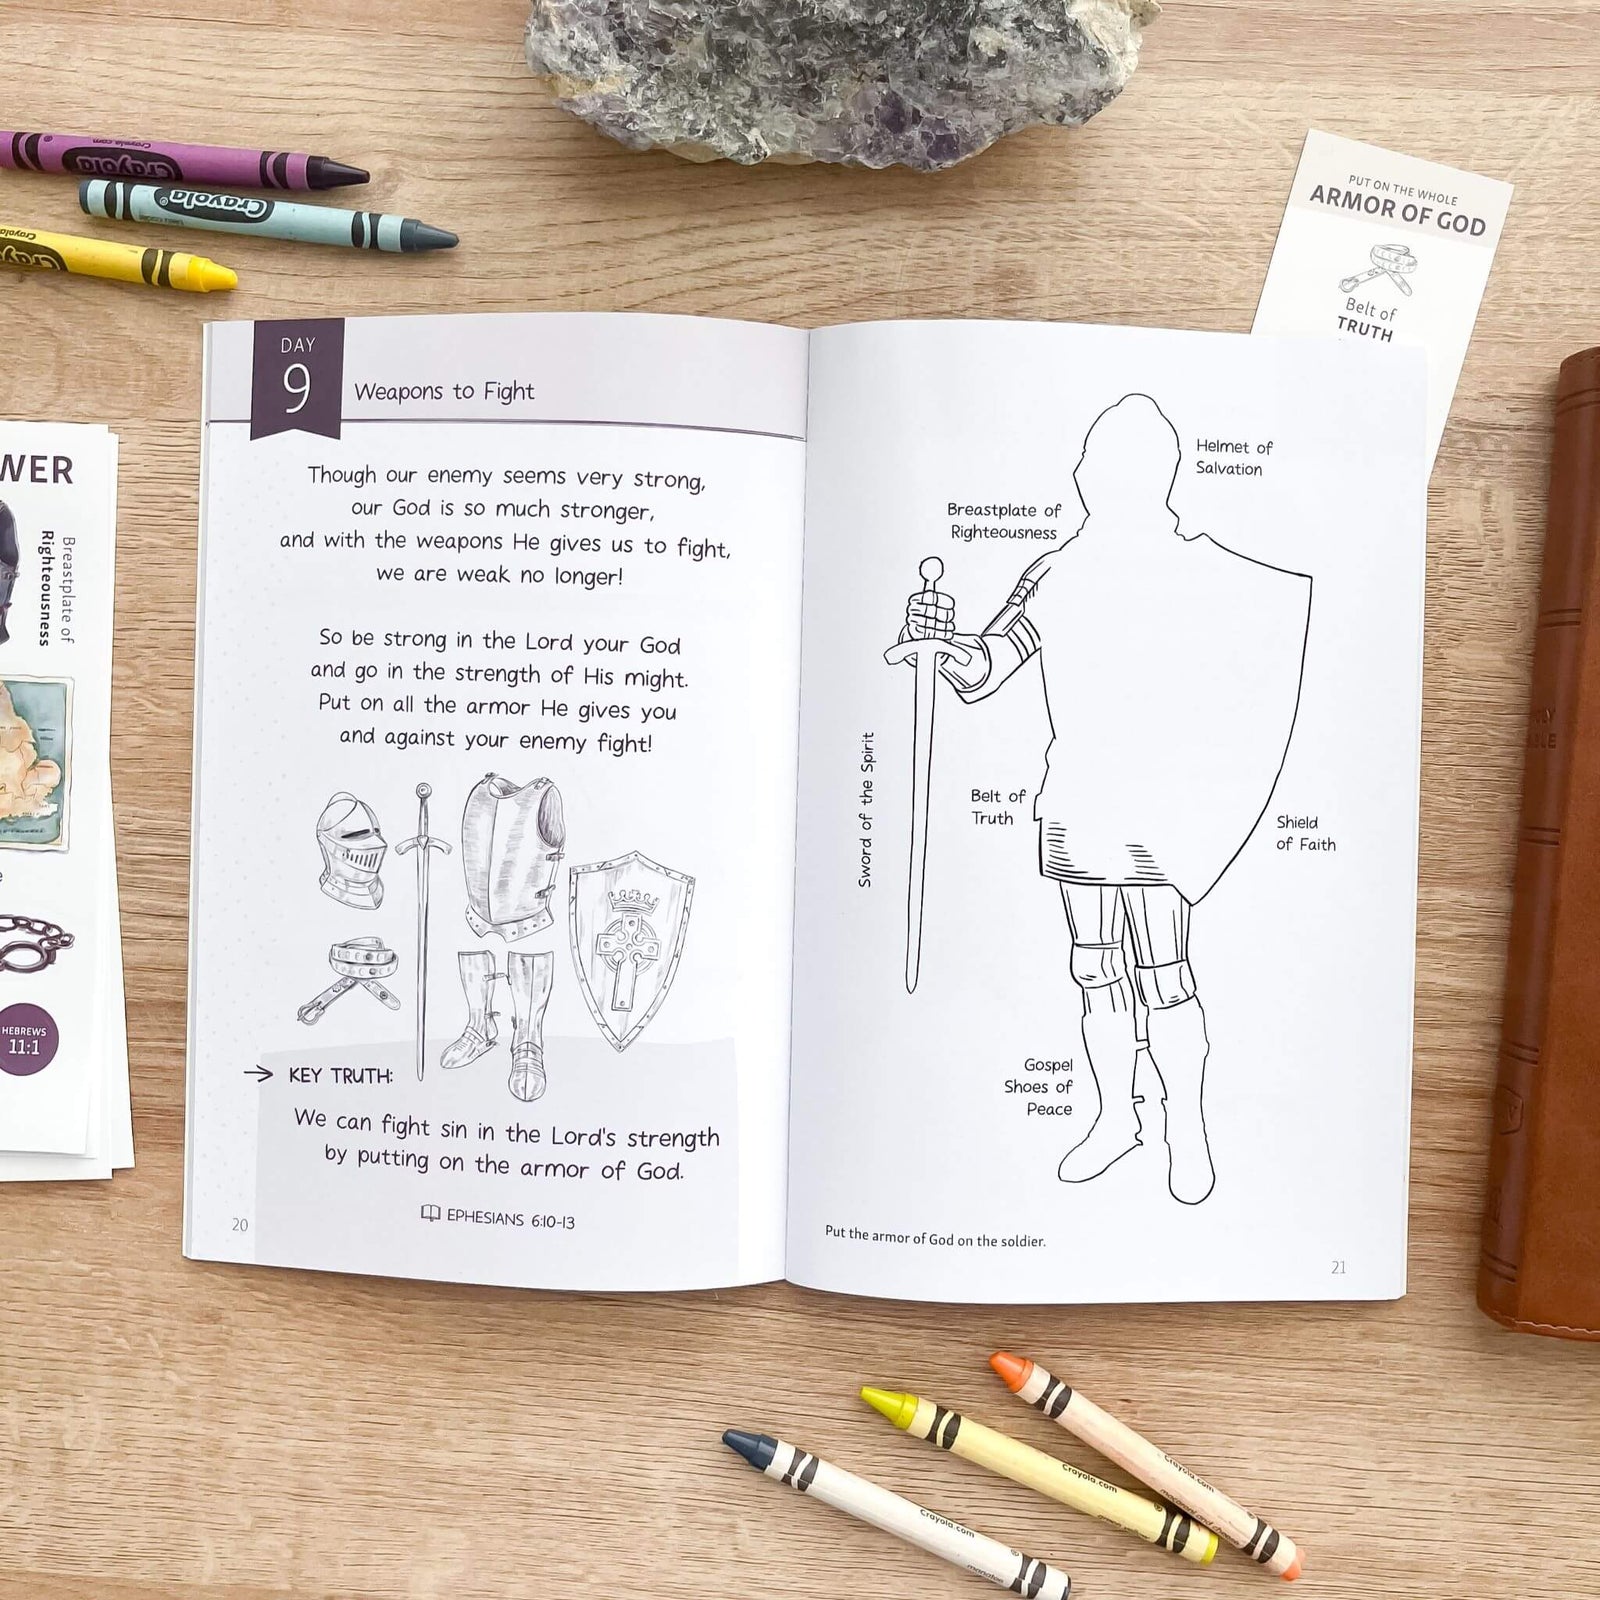 Crayola
Crayola.com
Crayola
Crayola
PUT ON THE WHOLE
ARMOR OF GOD
Belt of
TRUTH
WER
Breastplate of
Righteousness
HEBREWS
11:1
DAY
9
Weapons to Fight
Though our enemy seems very strong,
our God is so much stronger,
and with the weapons He gives us to fight,
we are weak no longer!
So be strong in the Lord your God
and go in the strength of His might.
Put on all the armor He gives you
and against your enemy fight!
→ KEY TRUTH:
We can fight sin in the Lord's strength
by putting on the armor of God.
EPHESIANS 6:10-13
20
Helmet of
Salvation
Breastplate of
Righteousness
Sword of the Spirit
Belt of
Truth
Shield
of Faith
Gospel
Shoes of
Peace
Put the armor of God on the soldier.
21
Crayola.com
macaroni and cheese
Crayola.com
Crayola.com
manatee